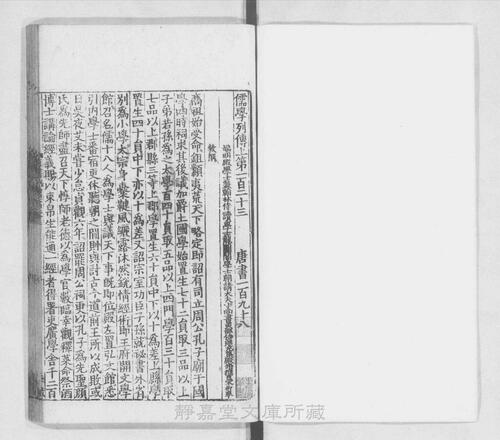 儒學列傳上第一百二十三　唐書一百九十八
端明殿學士兼翰林侍讀學士龍圖閣學士朝請大夫守尚書吏部侍郎充集賢殿脩撰臣宋祁奉
敕撰
高祖始受命鉏纇夷荒天下略定即詔有司立周公孔子廟于國
學四時祠求其後議加爵土國學始置生七十二員取三品以上
子弟若孫為之太學百四十員取五品以上四門學百三十員取
七品以上郡縣三等上郡學置生六十員中下以十為差上縣學
置生四十員中下亦以十為差又詔宗室功臣子孫就祕書外省
別為小學太宗身櫜鞬風纚露沐然銳情經術即王府開文學
館召名儒十八人為學士與議天下事既即位殿左置弘文館悉
引內學士番宿更休聽朝之間則與討古今道前王所以成敗或
日昃夜艾未嘗少怠貞觀六年詔罷周公祠更以孔子為先聖顏
氏為先師盡召天下惇師老德以為學官數臨幸觀釋菜命祭酒
博士講論經義賜以束帛生能通一經者得署吏廣學舍千二百
靜嘉堂文庫所藏